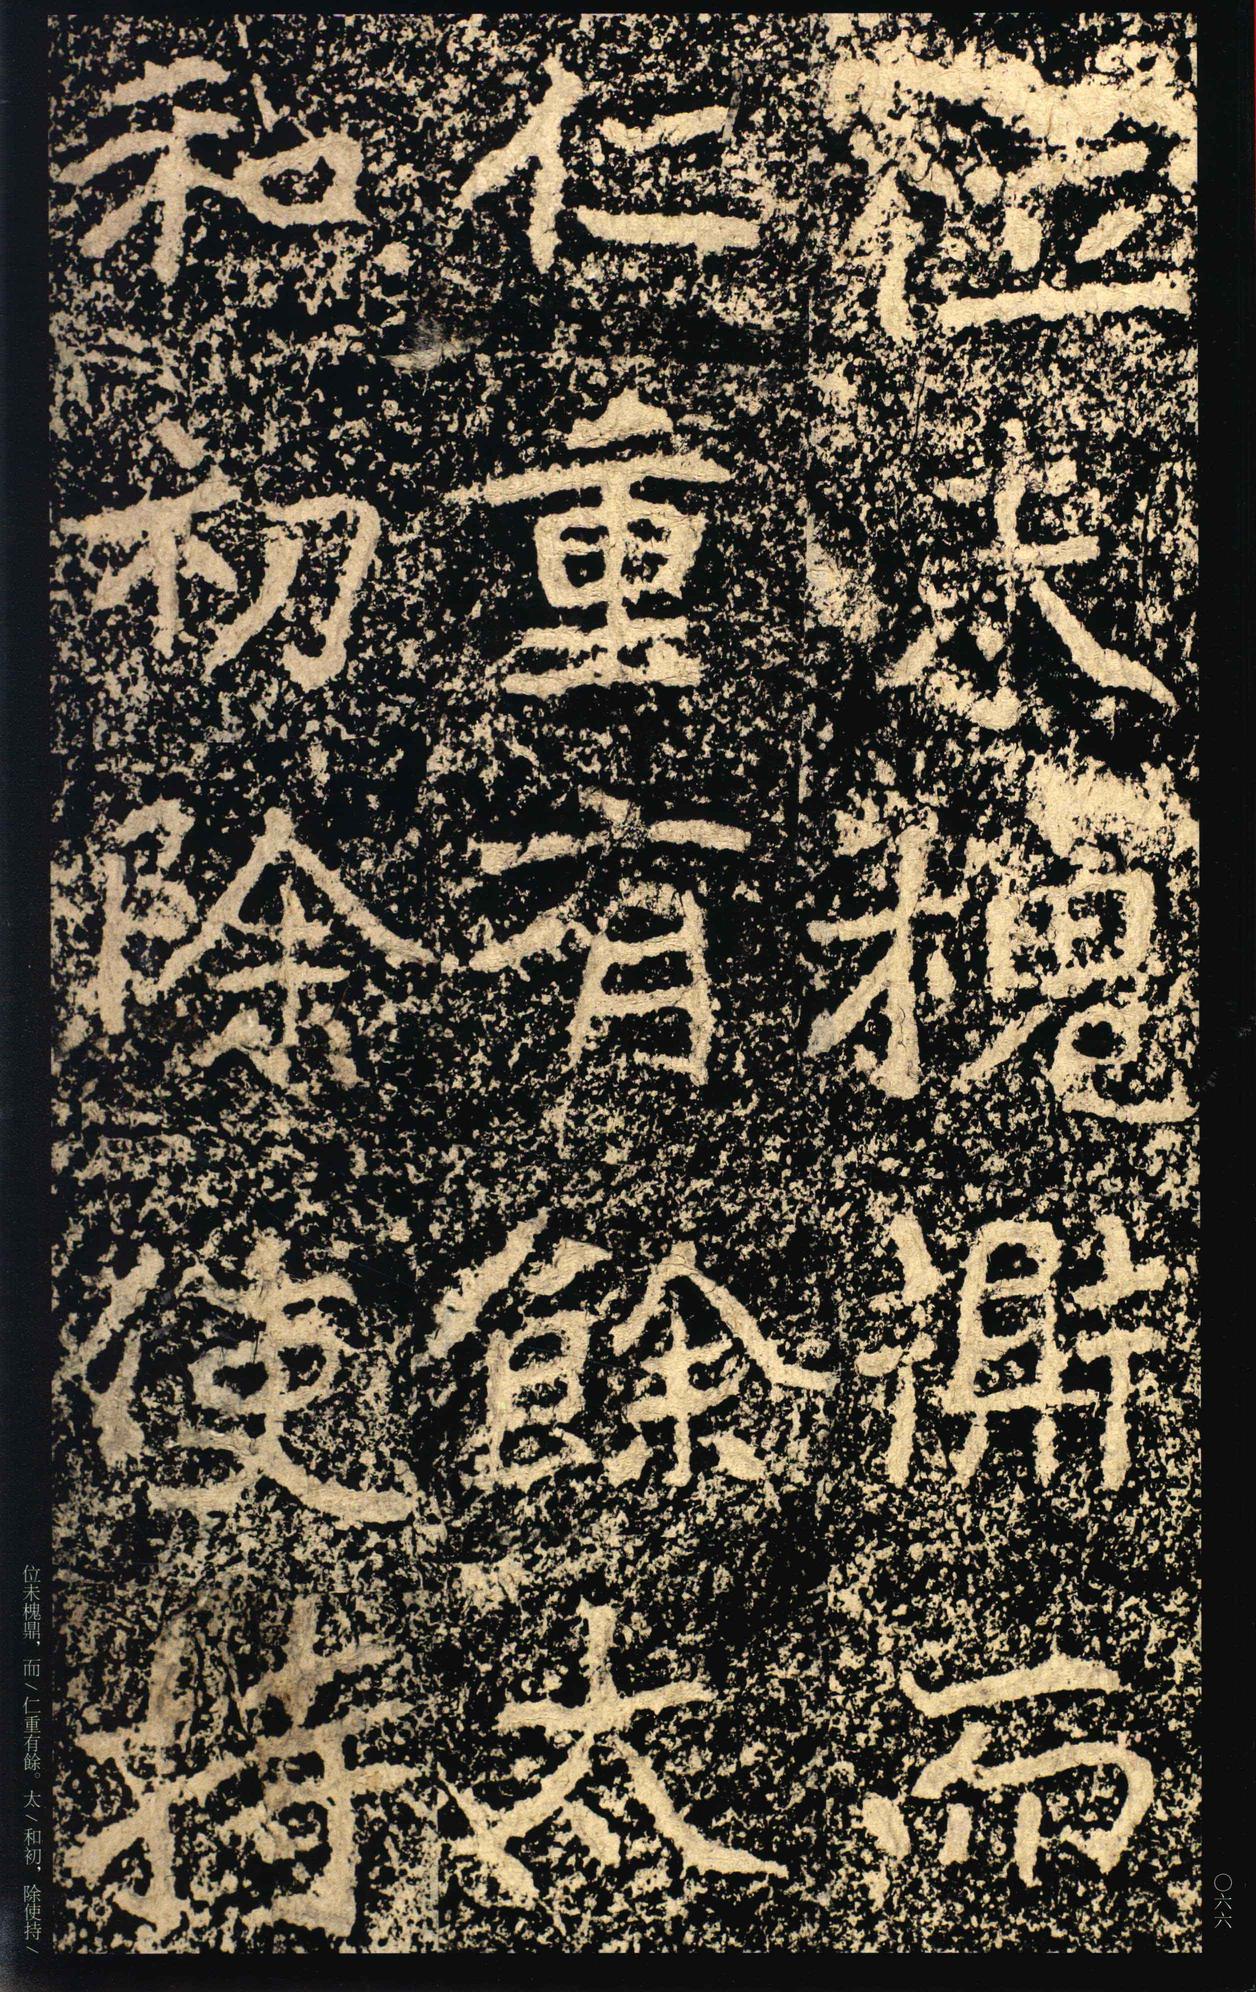 位未槐鼎而
仁重有餘太
和初除使持
位未槐鼎，而╲仁重有餘。太╲和初，除使持╲
〇六六